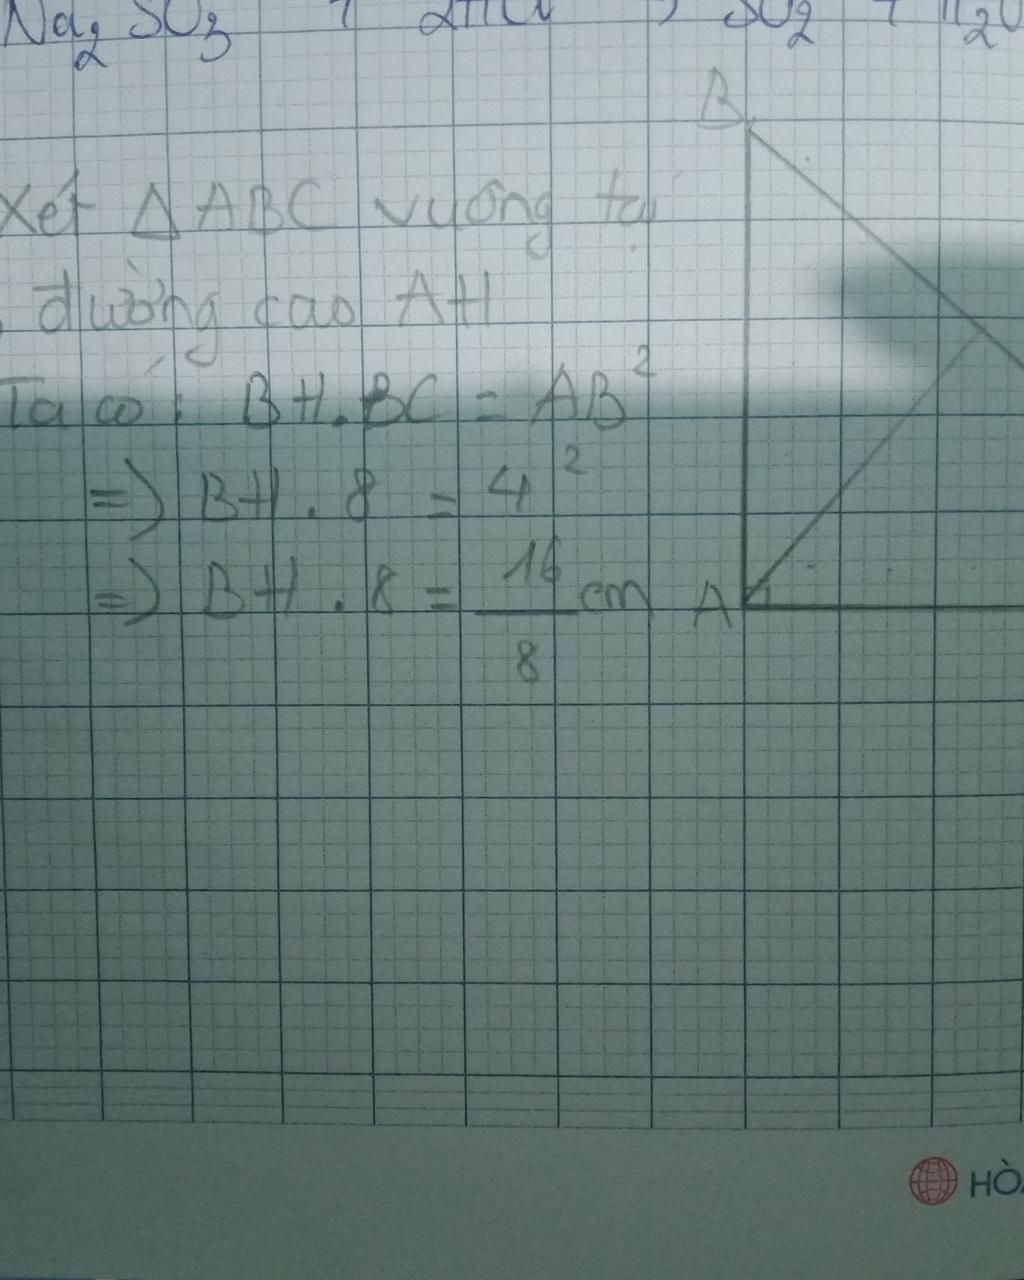 Na₂SO₃ + 2HCl → SO₂ + H₂O
B
Xét Δ ABC vuông tại
đường cao AH
Ta có: BH.BC = AB²
=> BH . 8 = 4²
=> BH . 8 = 16/8 cm
A
HÒA